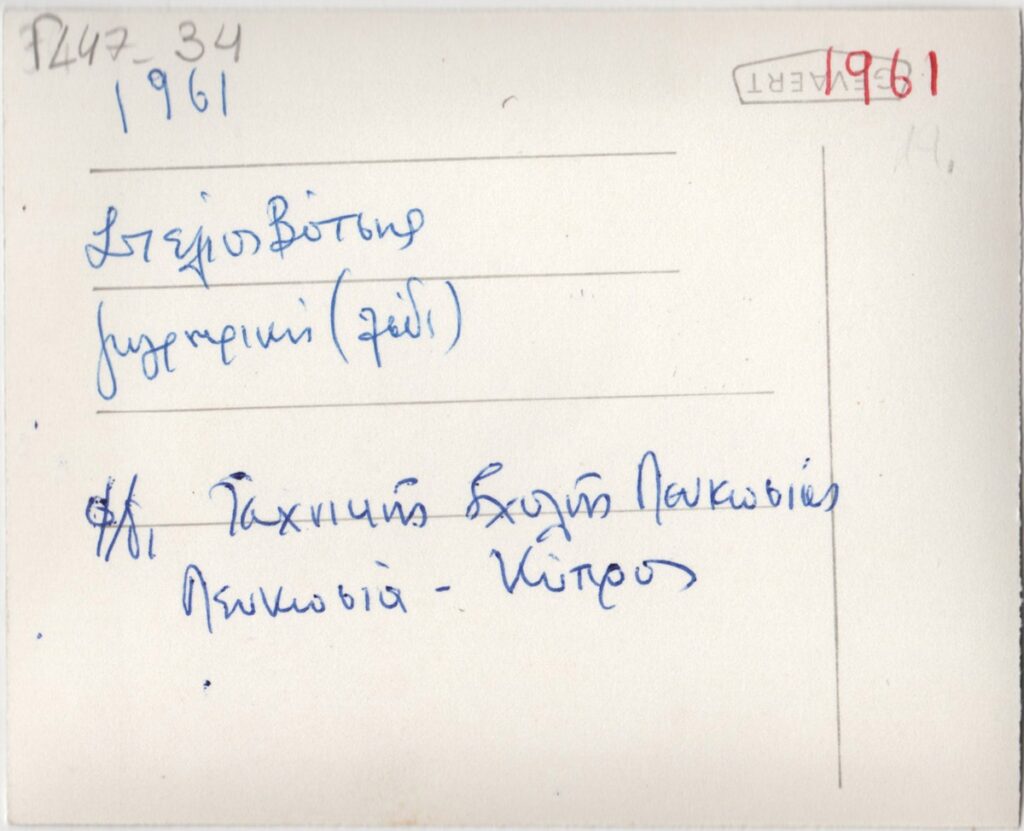 F447-34
1961
GEVAERT
1961
Στέλιος Βότσης
ζωγραφική (λάδι)
φ/δι Τεχνικής Σχολής Λευκωσίας
Λευκωσία - Κύπρος